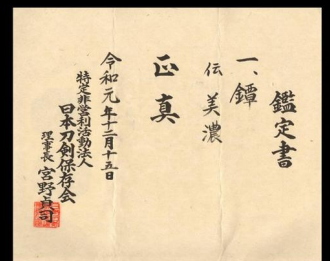 鑑定書
一、鐔
伝 美濃
正真
令和元年十二月十五日
特定非営利活動法人
日本刀剣保存会
理事長 宮野貞司